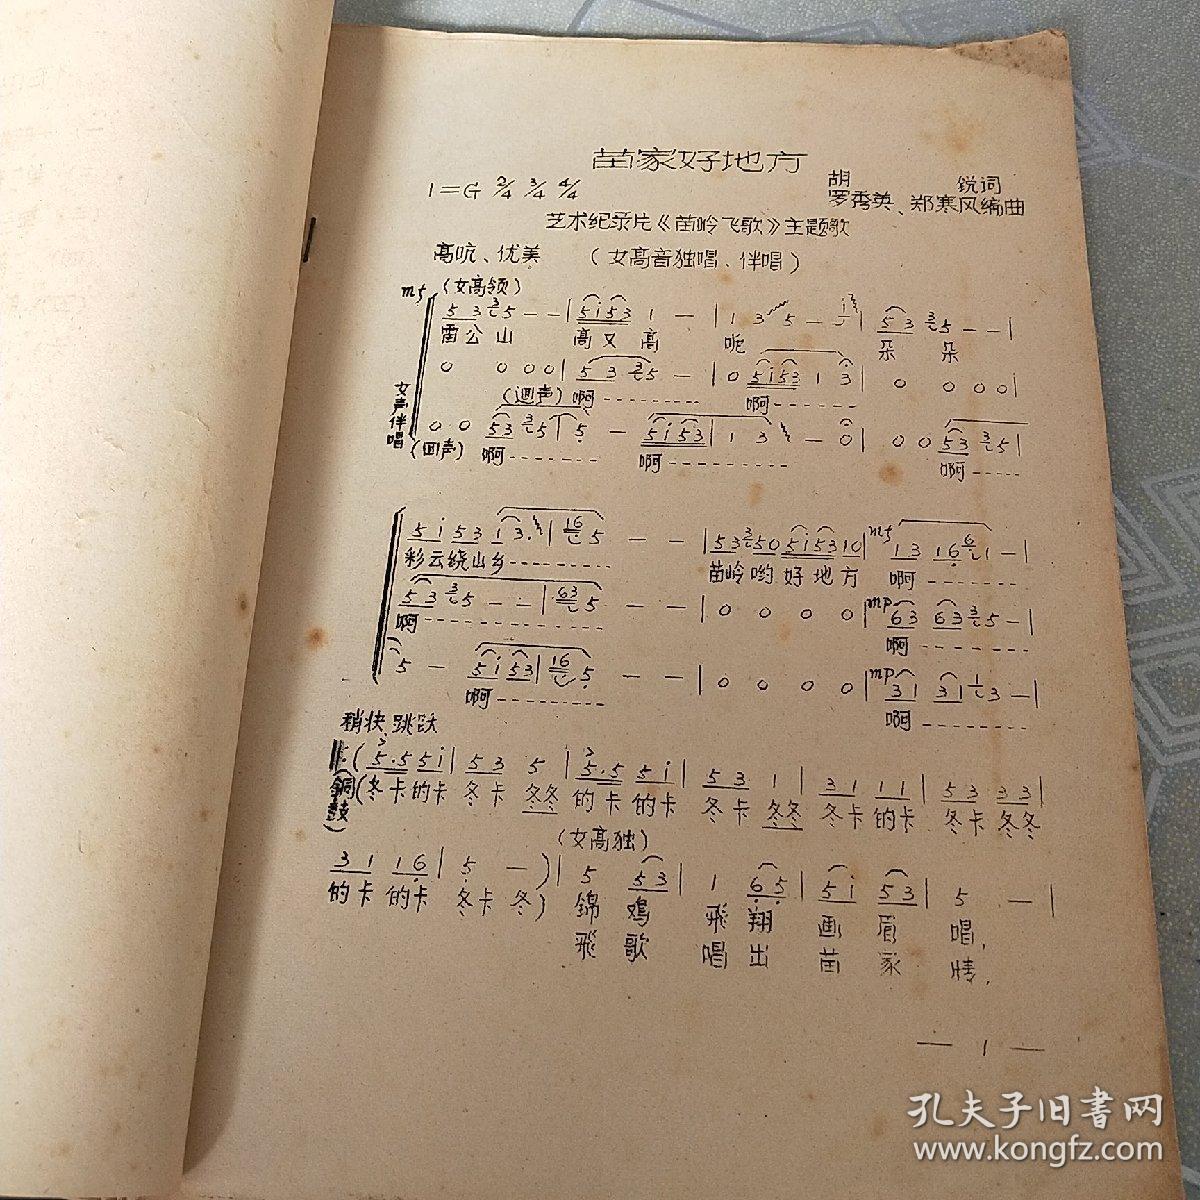 苗家好地方
1=G 2/4 3/4 4/4
胡 锐词
罗秀英、郑寒风编曲
艺术纪录片《苗岭飞歌》主题歌
高吭、优美 (女高音独唱、伴唱)
mf (女高领)
5 3 3 5 - - | 5 i 5 3 1 - | 1 3 5 - i | 5 3 3 5 - - |
雷公山 高又高 呃 朵 朵
0 0 0 0 | 5 3 3 5 - | 0 5 i 5 3 1 3 | 0 0 0 0 |
(迴声) 啊 啊
女声伴唱
0 0 5 3 3 5 | 5 - 5 i 5 3 | 1 3 - 0 | 0 0 5 3 3 5 |
(回声) 啊 啊 啊
5 i 5 3 1 3. | 16 5 - - | 5 3 3 5 0 5 i 5 3 1 0 | mf 1 3 1 6 6 1 - |
彩云绕山乡 苗岭哟好地方 啊
5 3 3 5 - - | 63 5 - - | 0 0 0 0 | mp 6 3 6 3 3 5 - |
啊 啊
5 - 5 i 5 3 | 16 5 - - | 0 0 0 0 | mp 3 1 3 1 1 3 - |
啊 啊
稍快 跳跃
( 5.5 5 i | 5 3 5 | 5.5 5 i | 5 3 1 | 3 1 1 1 | 5 3 3 3 |
(铜鼓) (冬卡的卡 冬卡 冬冬 的卡的卡 冬卡 冬冬 冬卡的卡 冬卡冬冬
(女高独)
3 1 1 6 | 5 - ) | 5 5 3 | 1 6 5 | 5 i 5 3 | 5 - |
的卡的卡 冬卡 冬) 錦鸡飛翔画眉唱,
飛歌唱出苗家情,
— 1 —
孔夫子旧书网
www.kongfz.com